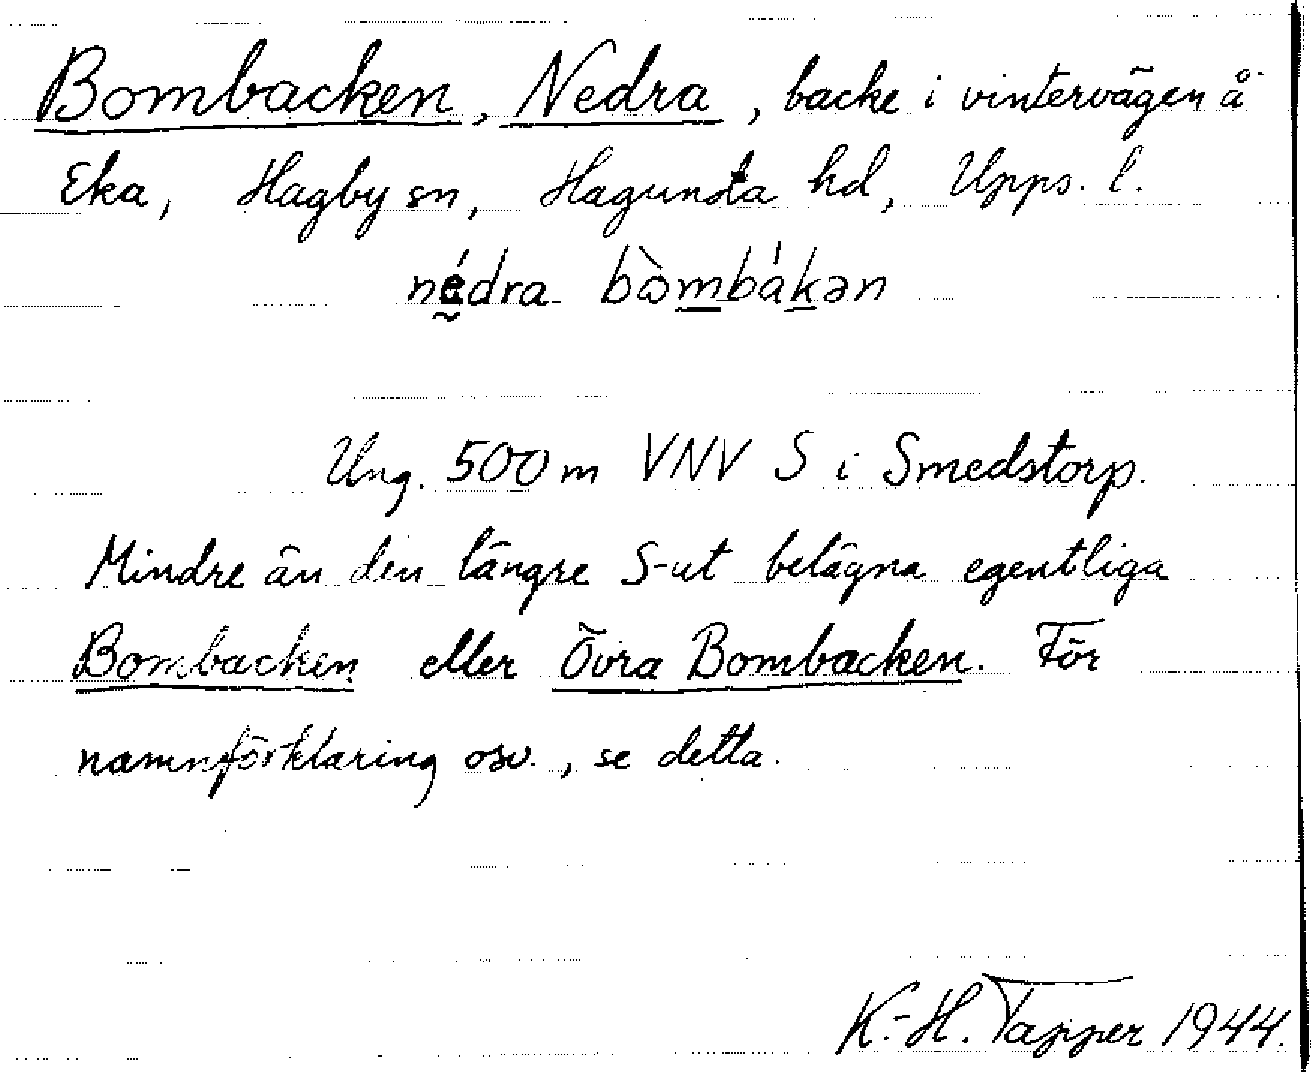 Bombacken, Nedra, backe i vintervägen å
Eka, Hagby sn, Hagunda hd, Upps. l.
nédra bòmbákən
Ung. 500 m VNV S i Smedstorp.
Mindre än den längre S-ut belägna egentliga
Bombacken eller Övra Bombacken. För
namnförklaring osv., se detta.
K.-H. Tapper 1944.